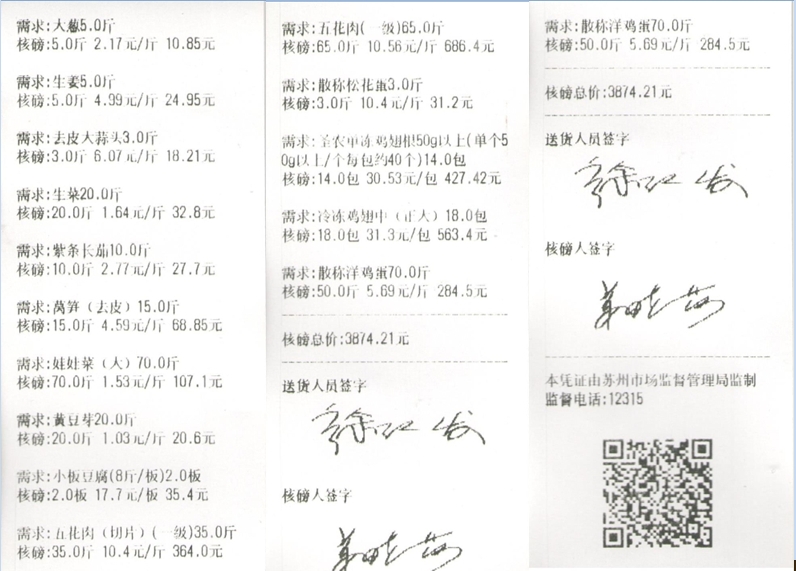 需求:大葱5.0斤
核磅:5.0斤 2.17元/斤 10.85元
需求:生姜5.0斤
核磅:5.0斤 4.99元/斤 24.95元
需求:去皮大蒜头3.0斤
核磅:3.0斤 6.07元/斤 18.21元
需求:生菜20.0斤
核磅:20.0斤 1.64元/斤 32.8元
需求:紫条长茄10.0斤
核磅:10.0斤 2.77元/斤 27.7元
需求:莴笋（去皮）15.0斤
核磅:15.0斤 4.59元/斤 68.85元
需求:娃娃菜（大）70.0斤
核磅:70.0斤 1.53元/斤 107.1元
需求:黄豆芽20.0斤
核磅:20.0斤 1.03元/斤 20.6元
需求:小板豆腐(8斤/板)2.0板
核磅:2.0板 17.7元/板 35.4元
需求:五花肉（切片）(一级)35.0斤
核磅:35.0斤 10.4元/斤 364.0元
需求:五花肉(一级)65.0斤
核磅:65.0斤 10.56元/斤 686.4元
需求:散称松花蛋3.0斤
核磅:3.0斤 10.4元/斤 31.2元
需求:圣农单冻鸡翅根50g以上(单个5
0g以上/个每包约40个)14.0包
核磅:14.0包 30.53元/包 427.42元
需求:冷冻鸡翅中（正大）18.0包
核磅:18.0包 31.3元/包 563.4元
需求:散称洋鸡蛋70.0斤
核磅:50.0斤 5.69元/斤 284.5元
核磅总价:3874.21元
送货人员签字
核磅人签字
需求:散称洋鸡蛋70.0斤
核磅:50.0斤 5.69元/斤 284.5元
核磅总价:3874.21元
送货人员签字
核磅人签字
本凭证由苏州市场监督管理局监制
监督电话:12315